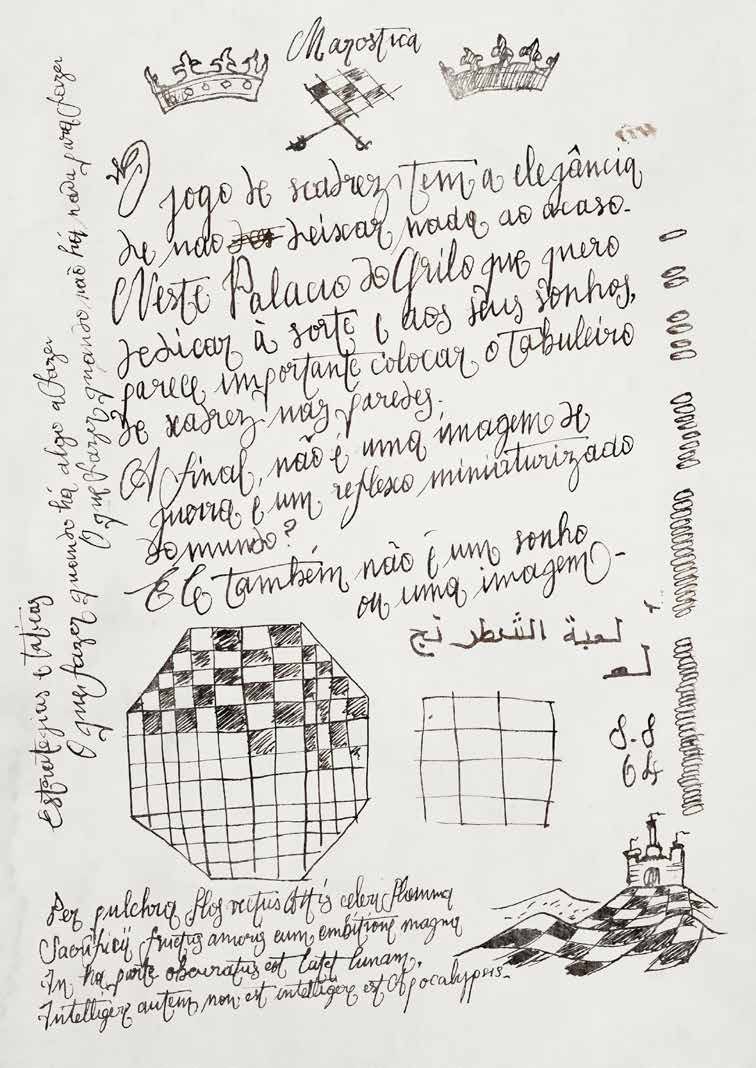 Marostica
O jogo de scadrez tem a elegância
de nao deixar nada ao acaso.
Neste Palacio do Grilo que quero
dedicar à sorte e aos seus sonhos,
parece importante colocar o tabuleiro
de xadrez nas paredes.
A final, não é uma imagem de
guerra e um reflexo miniaturizado
do mundo?
E Le também não é um sonho
ou uma imagem -
Estrategias e taticas
O que fazer quando há algo a fazer
O que fazer quando não há nada para fazer
لعبة الشطرنج
لع
8.8
64
Per pulchra flos
Sacrificii fructus amoris cum embitione magna
In hac parte obscuratus est latet lunam.
Intelligere autem non est intelligere est Apocalypsis.